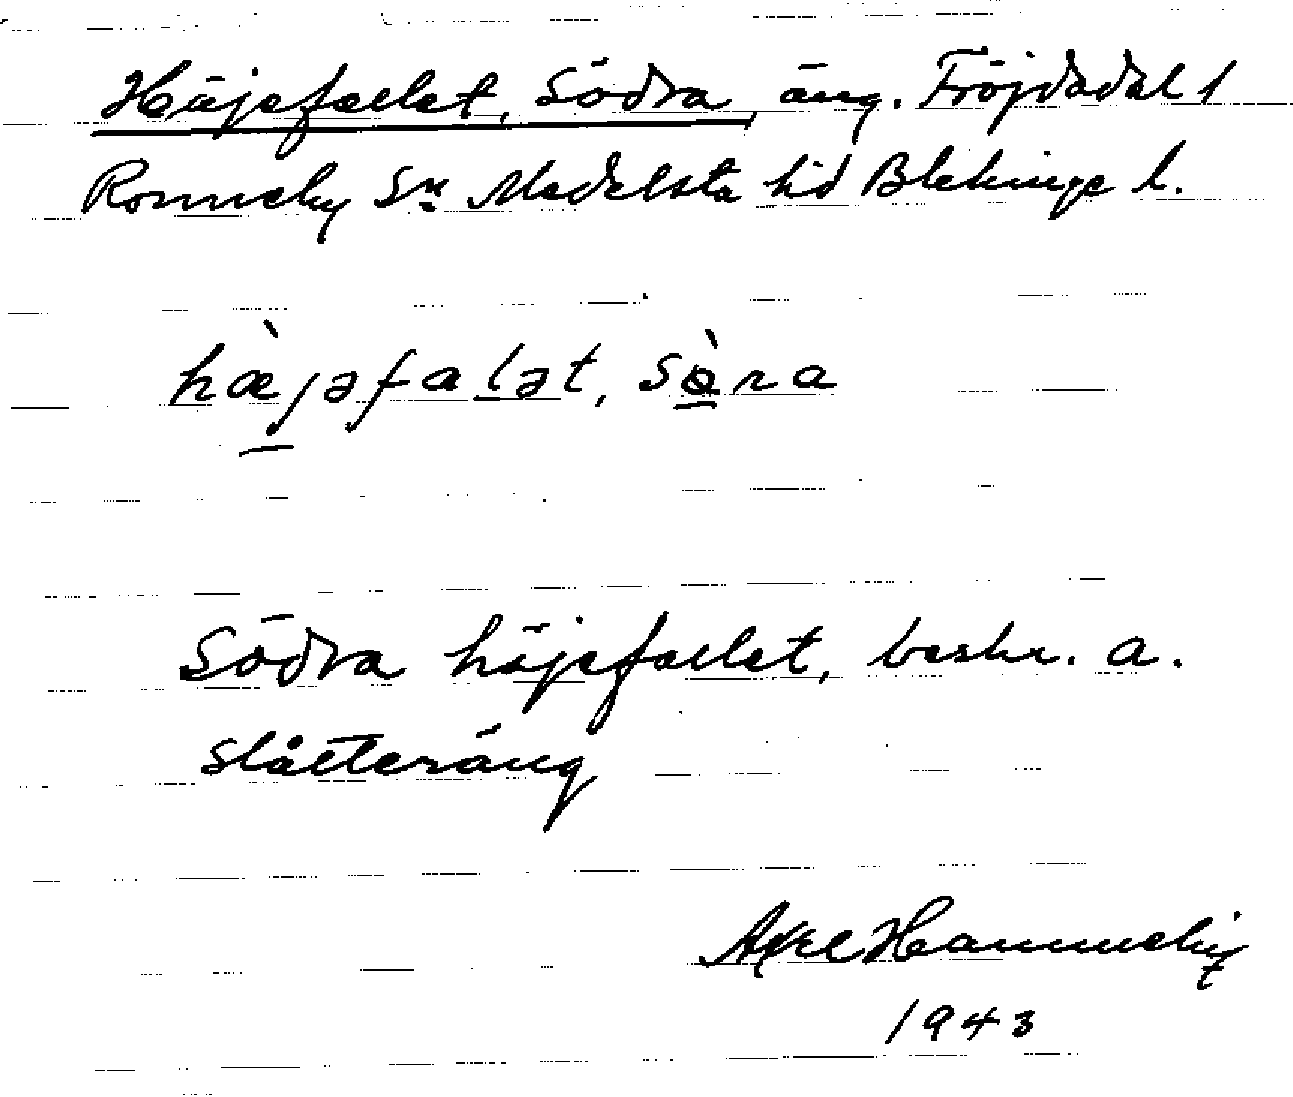 Häjefallet, Södra, äng. Fröjdadal 1
Ronneby Sn Medelsta hd Blekinge l.
hæ̀jəfalət, sø̀ra
Södra häjefallet, beskr. a.
slåtteräng
Axel
1943